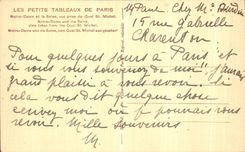 LES PETITS TABLEAUX DE PARIS
Notre-Dame et la Seine, vue prise du Quai St. Michel.
Notre-Dame and the Seine,
view taken from the Quai St. Michel.
Notre-Dame und die Seine, von Quai St. Michel aus gesehen
Mr Paul Chez Mr
15 rue Gabrielle
Charenton
Pour quelques jours à Paris et
si vous vous souvenez de moi j'aurais
grand plaisir à vous revoir. Si
cela vous dit quelque chose
écrivez moi où je pourrais vous
revoir. Mille souvenirs
M.